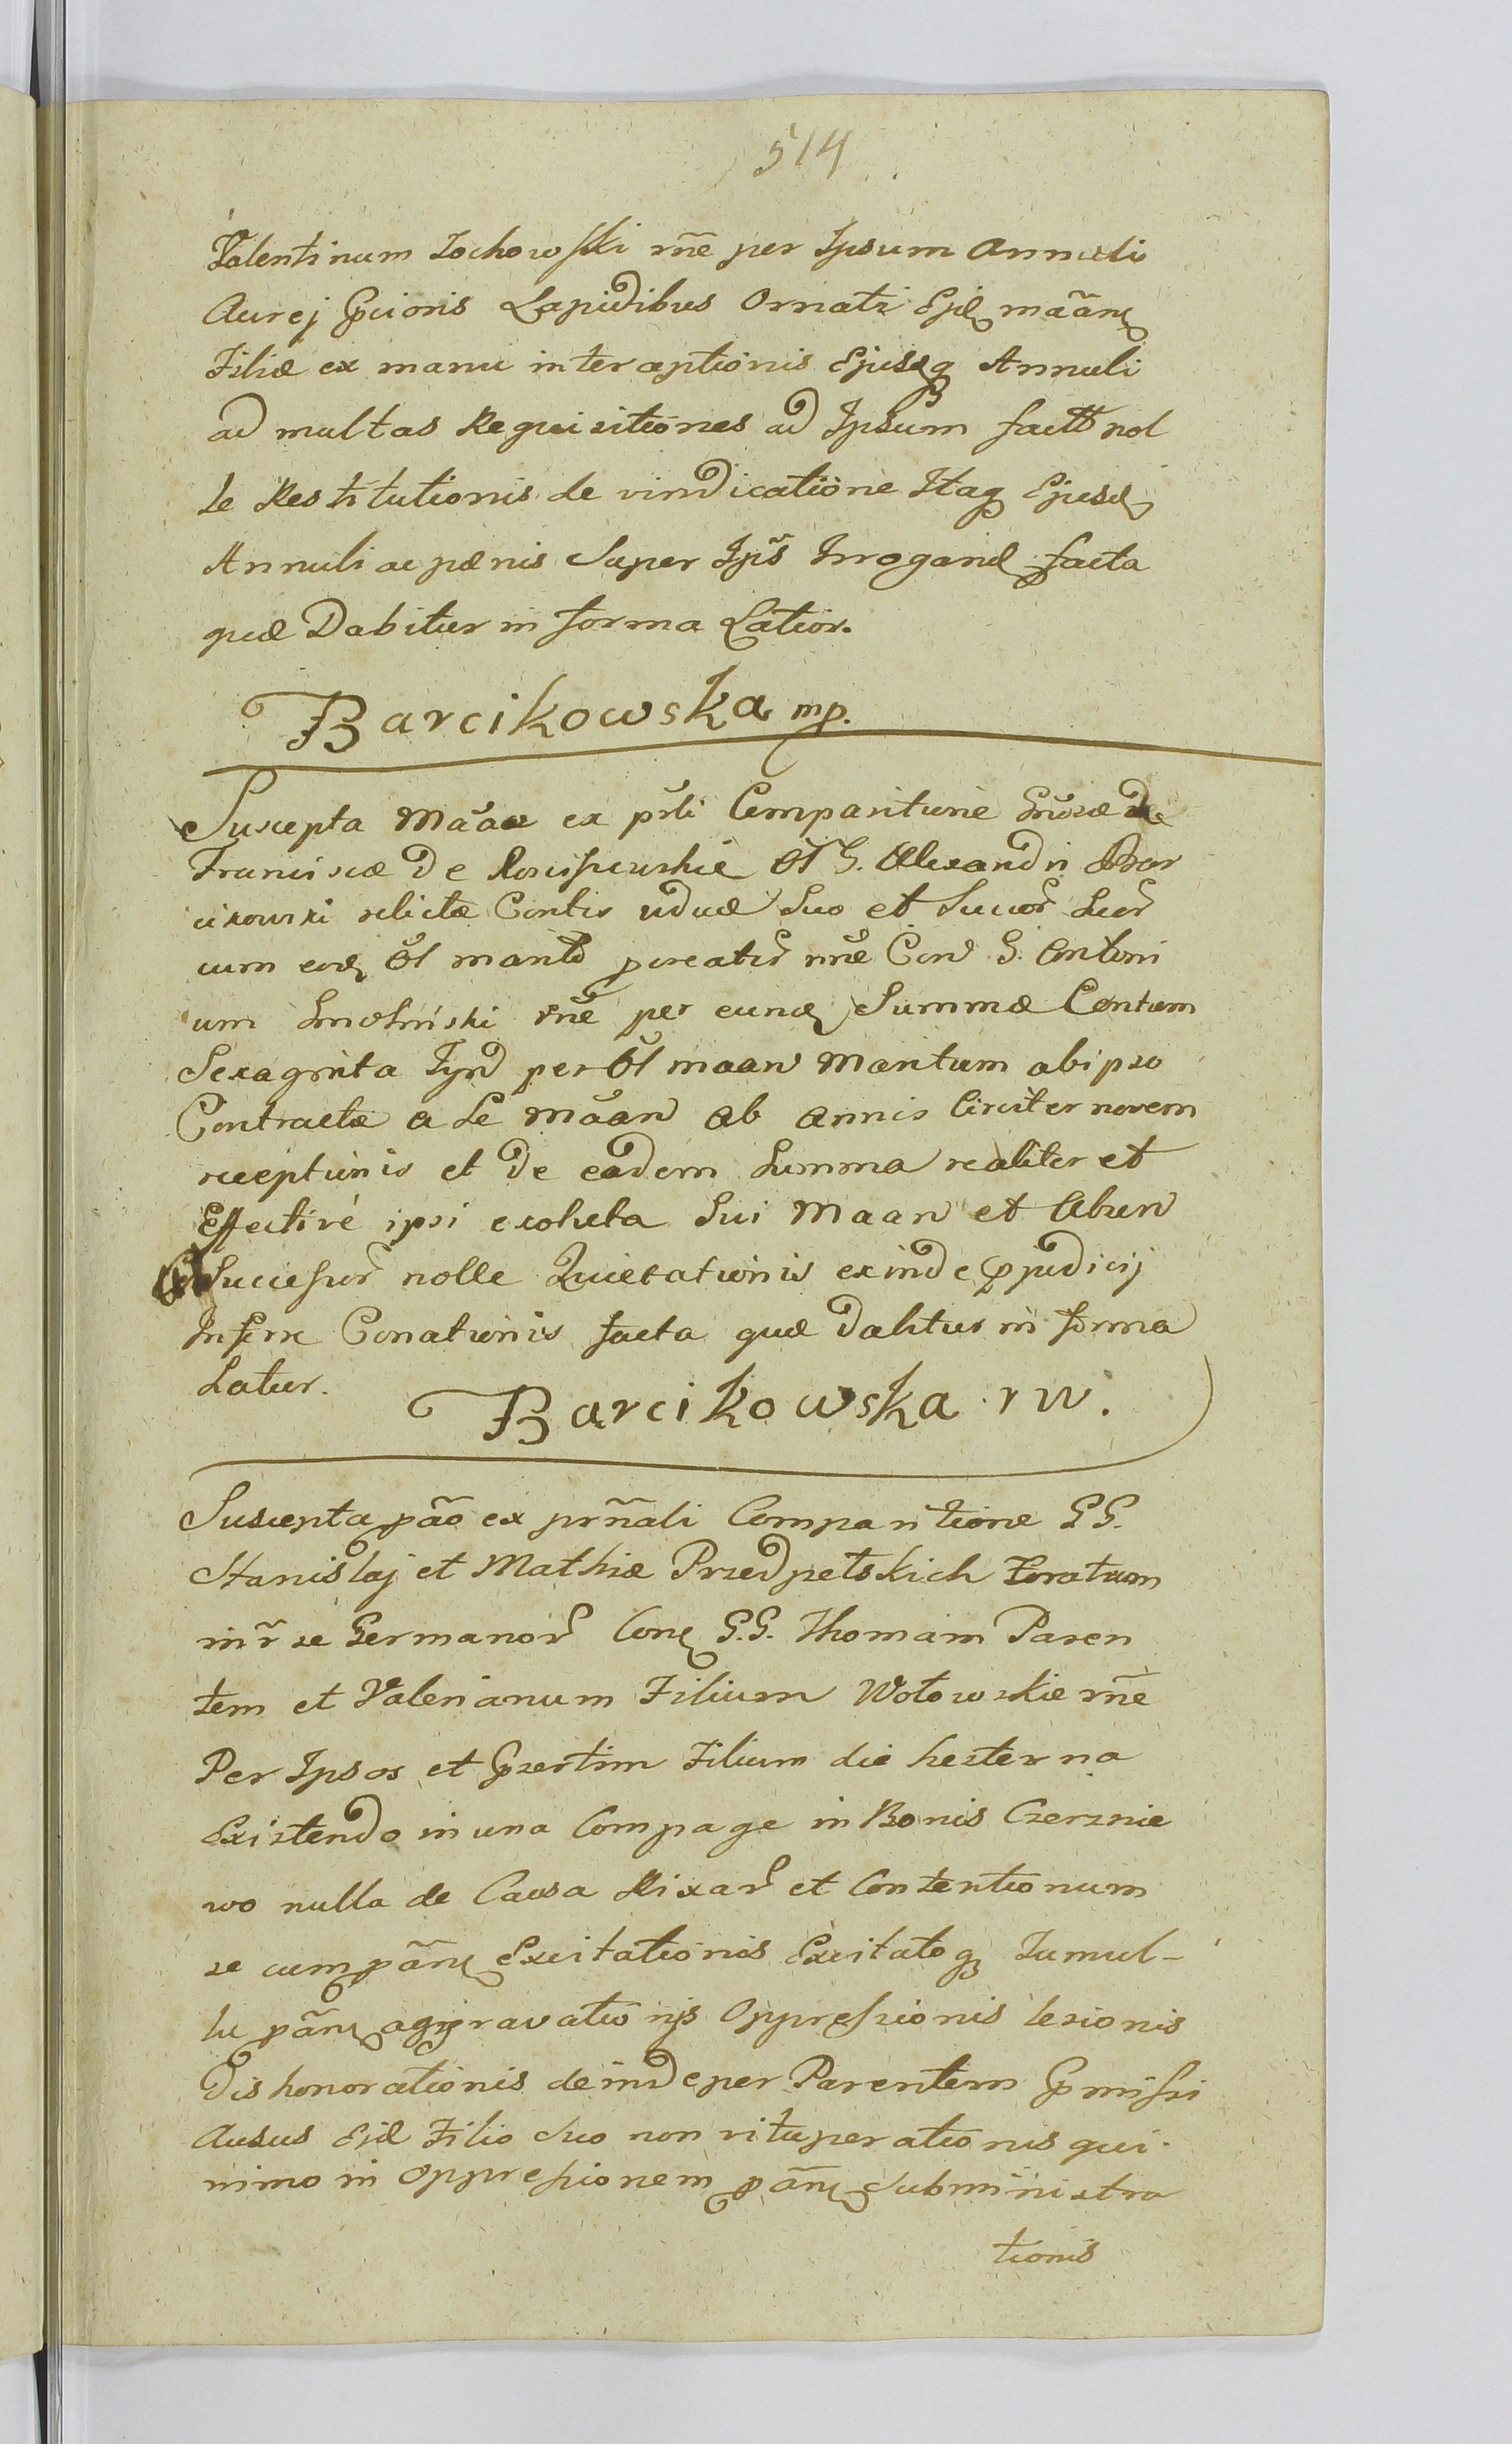 514
Valentinum Zochowski rñe per Ipsum Annuli
Aurej pcionis Lapidibus Ornati Ejd mãan
Filiæ ex manu interceptionis Ejusdq Annuli
ad multas Requisitiones ad Ipsum fact nol
le Restitutionis de vindicatione Itaq Ejusd
Annuli ac pænis Super Ips Irrogand facta
quæ Dabitur in forma Latior.
Barcikowska mp.
Suscepta Mãa ex prsli Comparitione Grosæ
Franciscæ De Rosciszewskie Ol G. Alexandri Bar
cikowski relictæ Contis viduæ Suo et Succor Suor
cum eod Ol marito pcreator nne Con G. Antoni
um Smolinski rñe per eund Summæ Centum
Sexaginta Tyn per Ol maan Maritum ab ipso
Contractæ a Se Mãan ab annis Circiter novem
receptionis et De eadem Summa realiter et
Effectivé ipsi exoluta Sui Maan et Alien
Successor nolle Quietationis exinde pjudicij
Inferre Conationis facta quæ dabitur in forma
Latior.
Barcikowska rw.
Suscepta pão ex prñali Comparitione G G.
Stanislaj et Mathiæ Przedpelskich Fratrum
inr se Germanor Con G.G. Thomam Paren
tem et Valerianum Filium Wołowskie rñe
Per Ipsos et psertim Filium die hesterna
Existendo in una Compage in Bonis Czernie
wo nulla de Causa Rixar et Contentionum
se cum pãn Excitationis Excitatoq Tumul-
tu pãn aggravationis Oppressionis lesionis
Dishonorationis deinde per Parentem pmissi
Ausus Ejd Filio Suo non vituperationis qui
nimo in Oppressionem pãn Subministra
tionis